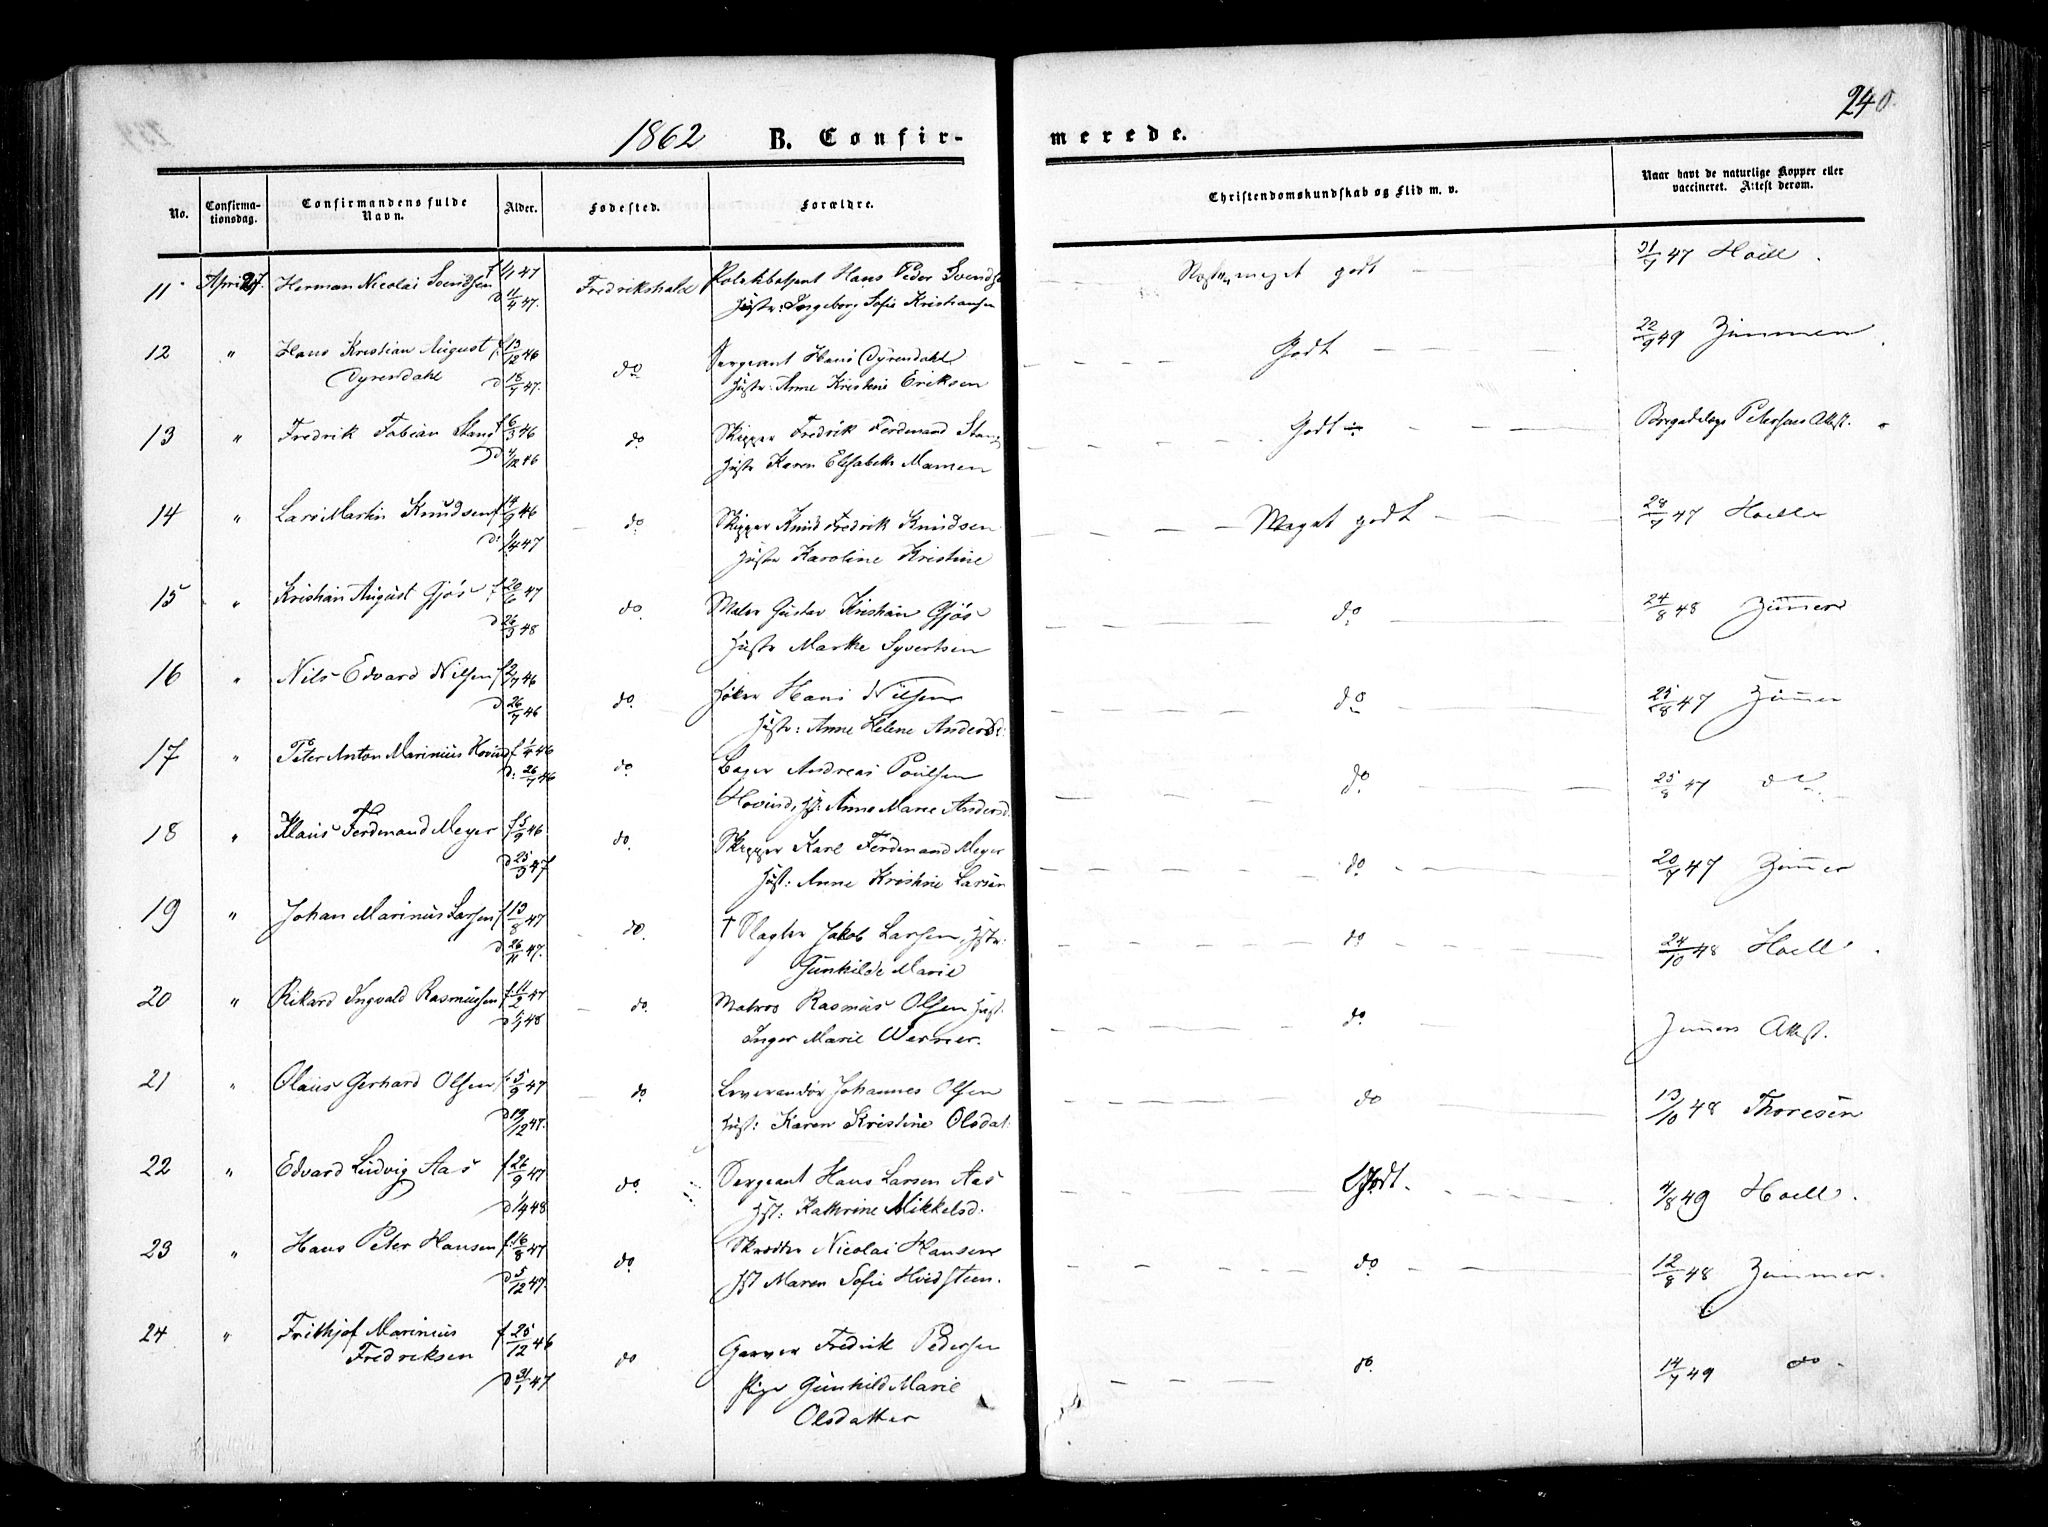 240.
1862 B. Confir-
merede.
No. Confirma-tionsdag. Confirmandens fulde Navn. Alder. Fødested. Forældre.
Christendomskundskab og Flid m. v. Naar havt de naturlige Kopper eller vaccineret. Attest derom.
11. April 27. Herman Nicolai Svendsen f 1/1 47 Fredrikshald Hans Peder Svends
d 11/4 47. Hustr: Ingeborg Sofie Kristiansen
meget godt 31/7 47 Hoell.
12 " Hans Kristian August f: 13/12 46 do Sergeant Hans Dyrendahl
Dyrendahl d 18/7 47. Hustr: Anne Kristine Eriksen
Godt 22/9 49 Zimmer
13 " Fredrik Fabian Stang f 6/3 46 do Skipper Fredrik Ferdinand Stang
d 4/12 46 Hustr Karen Elisabeth Mamen
Godt Petersens Attest.
14 " Lars Martin Knudsen f 14/9 46 do Skipper Knud Fredrik Knudsen
d: 1/4 47 Hustr Karoline Kristine
Meget godt 28/7 47 Hoell
15 " Kristian August Gjøs f. 20/6 47 do Maler Gustav Kristian Gjøs
d 26/3 48 Hustr Marthe Syvertsen
do 24/8 48 Zimmer
16 " Nils Edvard Nilsen f 2/7 46 do Høker Hans Nilsen
d 26/7 46 Hustr: Anne Helene Andersd:
do 25/8 47 Zimmer
17 " Peter Anton Marinius Hovind f 1/4 46 do Bager Andreas Poulsen
d: 26/7 46 Hovind, H: Anne Marie Andersd
do 25/8 47 do
18 " Klaus Ferdinand Meyer f 5/9 46 do. Skipper Karl Ferdinand Meyer
d 25/3 47 Hust: Anne Kristine Larsen
do 20/7 47 Zimmer
19 " Johan Marinus Larsen f 13/8 47 do. † Slagter Jakob Larsen, Hstr:
d 26/11 47. Gunhilde Marie
do 24/10 48 Hoell.
20 " Rikard Ingvald Rasmussen f: 11/2 47 do. Matros Rasmus Olsen Hust:
d 6/1 48 Inger Marie Werner.
do Zimers Attest.
21 " Olaus Gerhard Olsen f: 5/9 47 do Leverandør Johannes Olsen
d 19/12 47. Hust: Karen Kristine Olsdat:
do 13/10 48 Thoresen
22 " Edvard Ludvig Aas f 26/9 47 do Sergeant Hans Larsen Aas
d 1/4 48 Hst: Kathrine Mikkelsd.
Godt. 4/8 49 Hoell.
23 " Hans Peter Hansen f: 16/8 47 do Skrædder Nicolai Hansen
d 5/12 47. Hst Maren Sofie Hvidsteen.
do 12/8 48 Zimmer.
24 " Frithjof Marinius f 25/12 46 do Garver Fredrik Pedersen
Fredriksen d 31/1 47 Pige Gunhild Marie
Olsdatter
do 14/7 49 do.